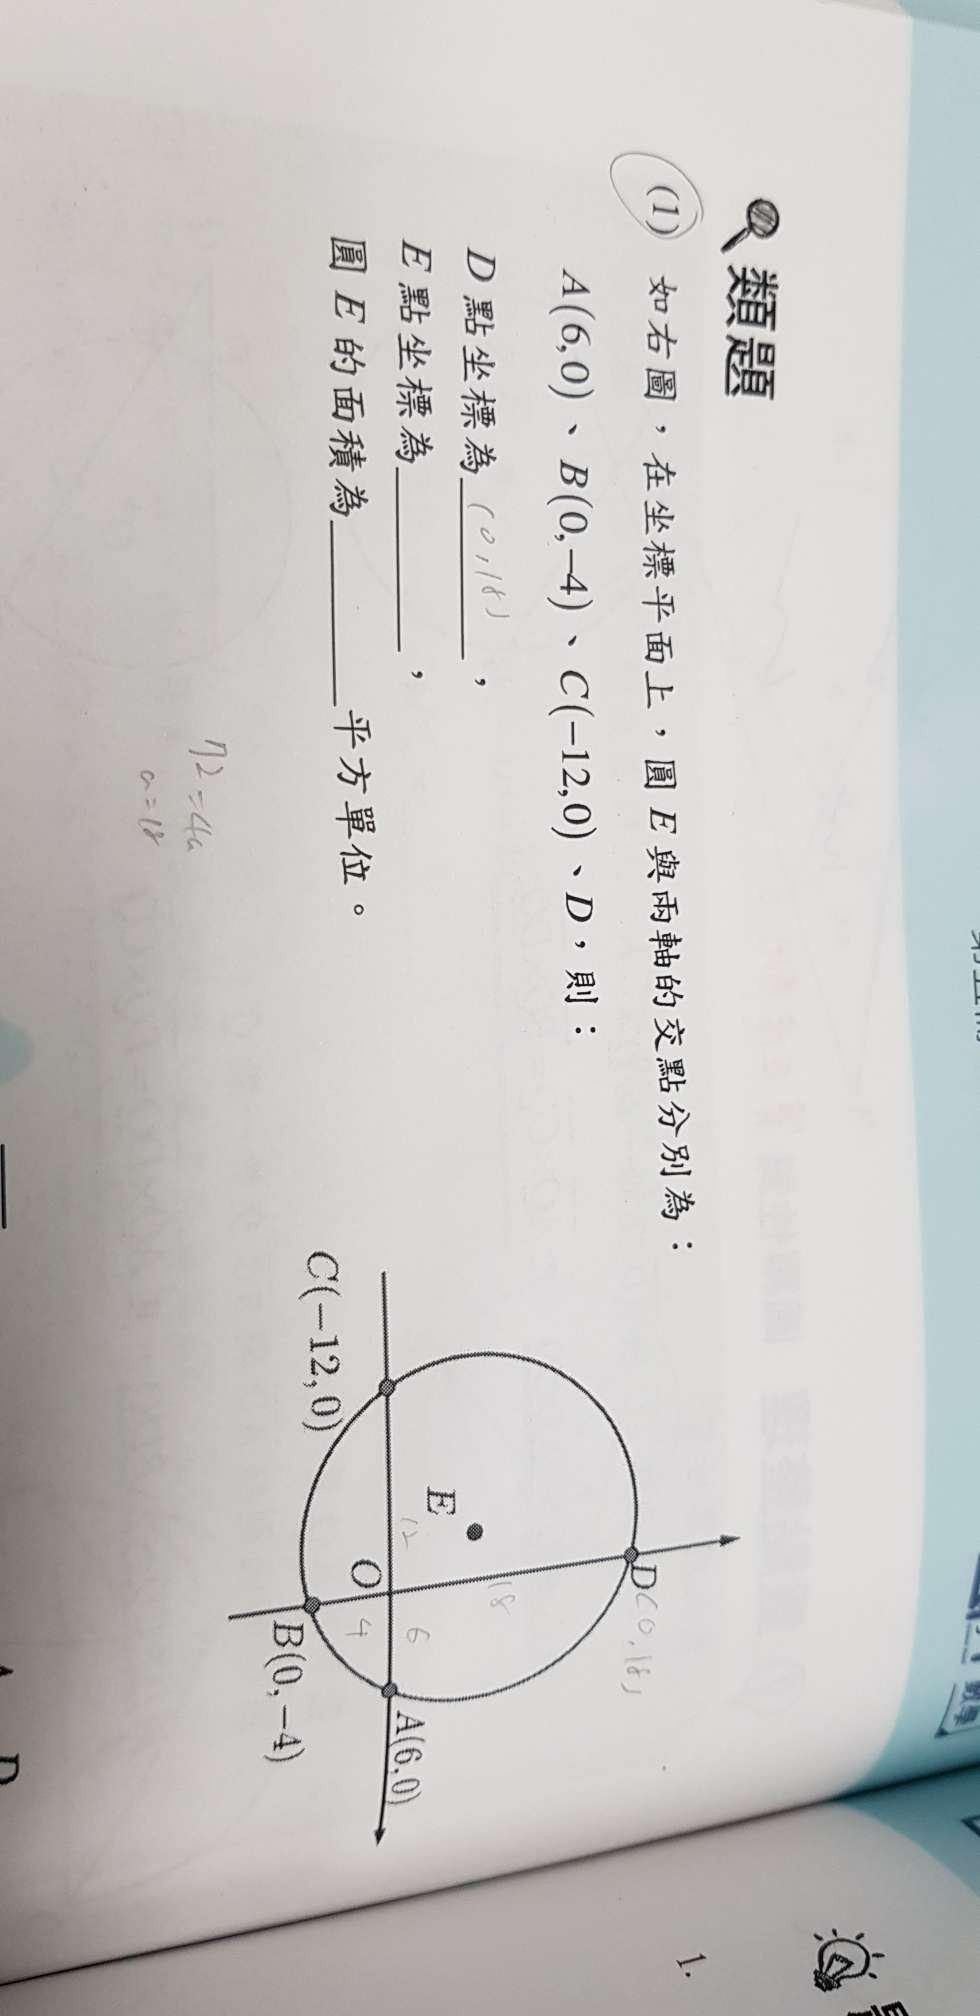 類題
(1) 如右圖，在坐標平面上，圓 E 與兩軸的交點分別為：
A(6,0)、B(0,-4)、C(-12,0)、D，則：
D 點坐標為 (0,18)，
E 點坐標為________，
圓 E 的面積為________平方單位。
72=4a
a=18
D(0,18)
18
E
12
6
O
4
C(-12,0)
A(6,0)
B(0,-4)
數學
1.